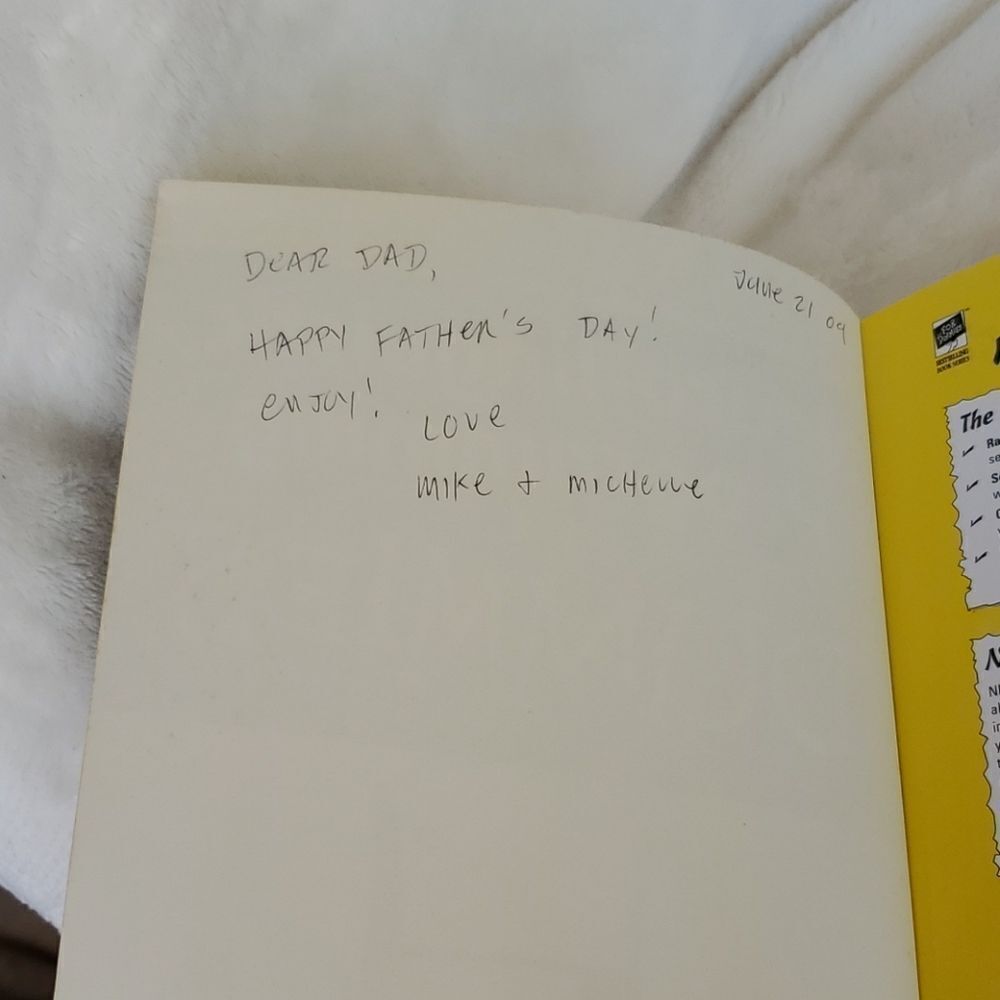 DEAR DAD,
June 21 09
HAPPY FATHER'S DAY!
ENJOY!
LOVE
MIKE + MICHELLE
FOR DUMMIES
BESTSELLING
BOOK SERIES
The